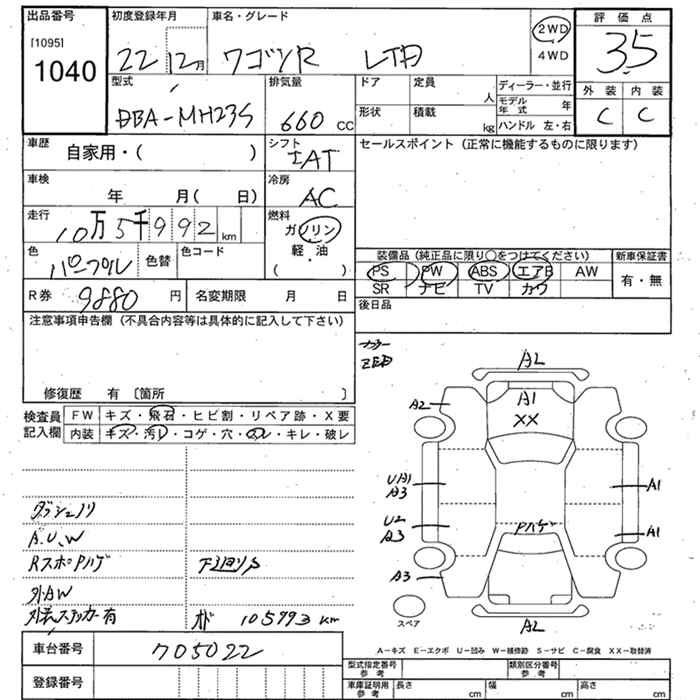 出品番号 初度登録年月 車名・グレード 評価点
[1095] 1040 22 12月 ワゴンR LTD 2WD 4WD 3.5
型式 排気量 ドア 定員 人 ディーラー・並行 外装 内装
DBA-MH23S 660 CC 形状 積載 kg モデル年式 年 ハンドル 左・右 C C
車歴 自家用・( ) シフト IAT セールスポイント (正常に機能するものに限ります)
車検 年 月( 日) 冷房 AC
走行 10万5千992km 燃料 ガソリン 軽・油 ( )
色 パープル 色替 色コード
装備品 (純正品に限り○をつけてください) 新車保証書
PS PW ABS エアB AW 有・無
SR ナビ TV カワ
R券 9880円 名変期限 月 日 後日品
注意事項申告欄 (不具合内容等は具体的に記入して下さい)
修復歴 有 〔箇所 〕
検査員記入欄 FW キズ・飛石・ヒビ割・リペア跡・X要
内装 キズ・汚レ・コゲ・穴・スレ・キレ・破レ
AL
A1
XX
A2
UA1
A3
A1
U2
A3
A1
Pハゲ
A3
AL
スペア
ダッシュノリ
A.U.W
RスポPハゲ 下回りS
外AW
外装ステッカー有 オド 105993km
A-キズ E-エクボ U-凹み W-補修跡 S-サビ C-腐食 XX-取替済
車台番号 705022
登録番号
型式指定番号 参考 類別区分番号 参考
車庫証明用 参考 長さ cm 幅 cm 高さ cm